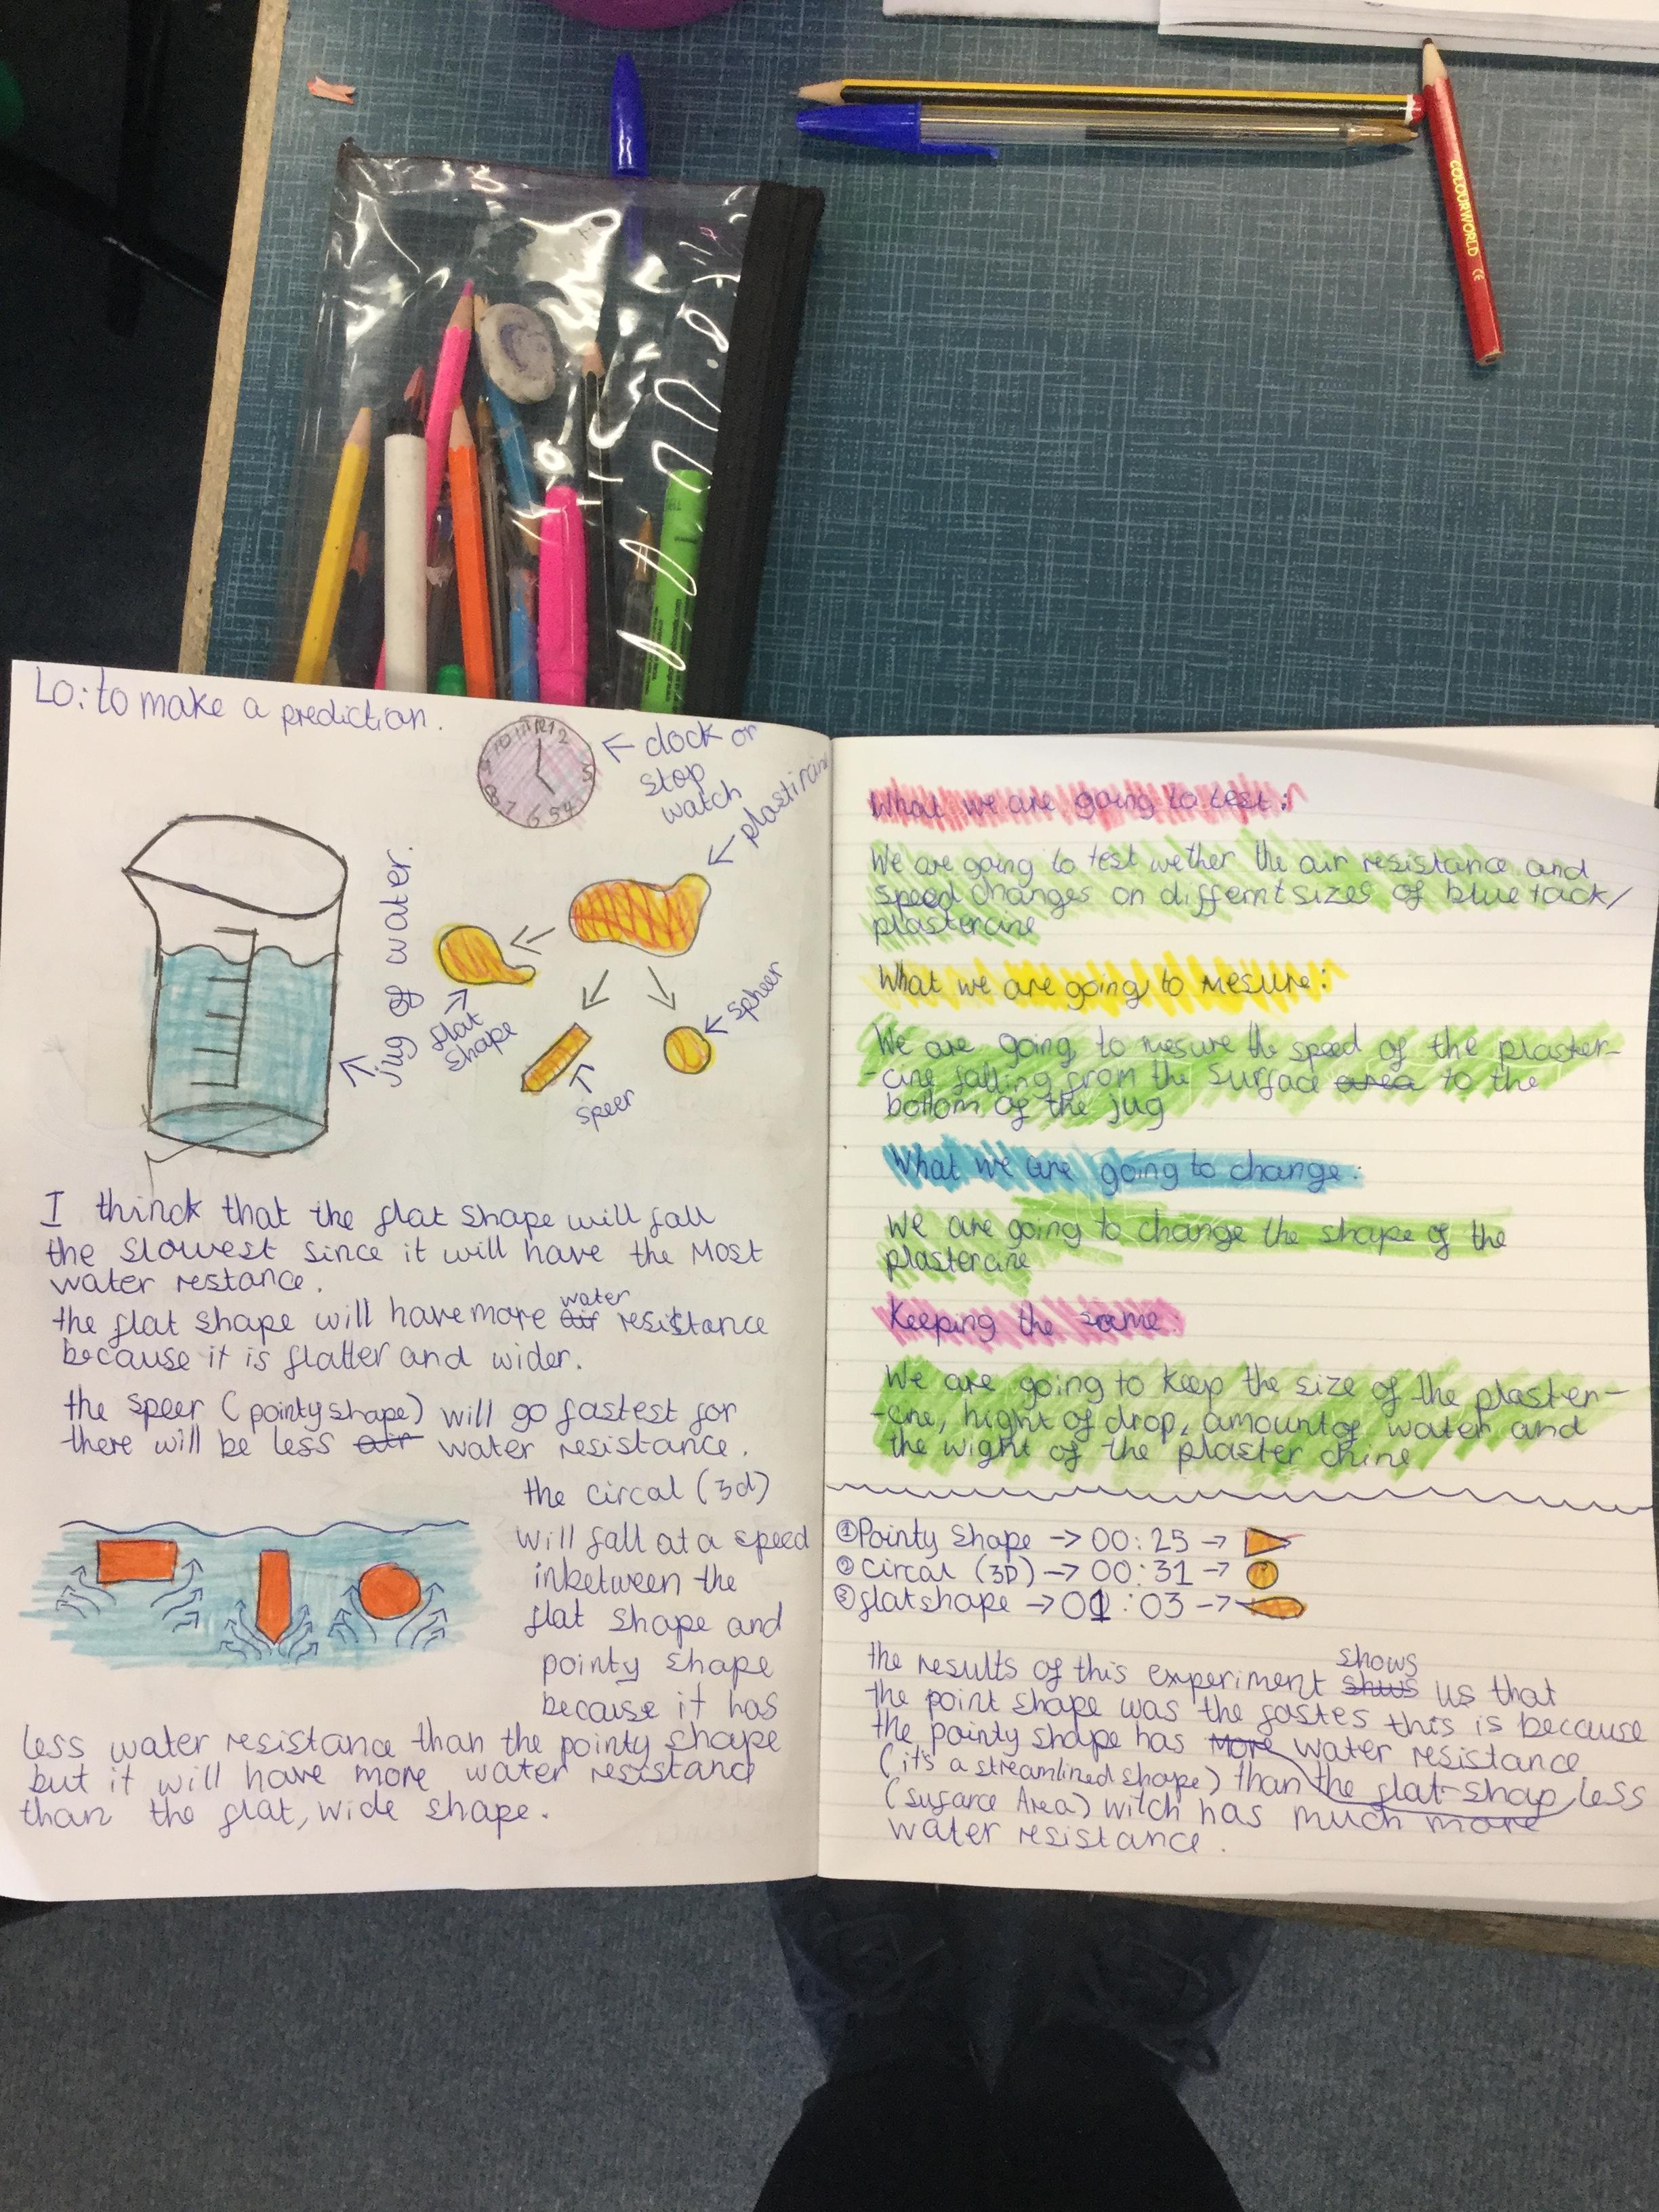 COLOURWORLD CE
LO: to make a prediction.
clock or
stop
watch
jug of water.
flat
shape
speer
spheer
I thinck that the flat shape will fall
the slowest since it will have the most
water restance.
the flat shape will have more ~~air~~ water resistance
because it is flatter and wider.
the speer (pointy shape) will go fastest for
there will be less ~~air~~ water resistance.
the circal (3d)
will fall at a speed
inbetween the
flat shape and
pointy shape
because it has
less water resistance than the pointy shape
but it will have more water resistance
than the flat, wide shape.
What we are going to test:
We are going to test wether the air resistance and
speed changes on differnt sizes of blue tack/
plastercine
What we are going to mesure:
We are going to mesure the speed of the plaster-
-cine falling from the surface ~~area~~ to the
bottom of the jug
What we are going to change:
We are going to change the shape of the
plastercine
Keeping the same:
We are going to keep the size of the plaster-
-cine, hight of drop, amount of water and
the wight of the plaster chine
① Pointy shape → 00:25 →
② circal (3D) → 00:31 →
③ flat shape → 01:03 →
the results of this experiment ~~shws~~ shows us that
the point shape was the fastes this is because
the pointy shape has ~~more~~ water resistance
(it's a streamlined shape) than the flat shap less
(sufarce Area) witch has much more
water resistance.